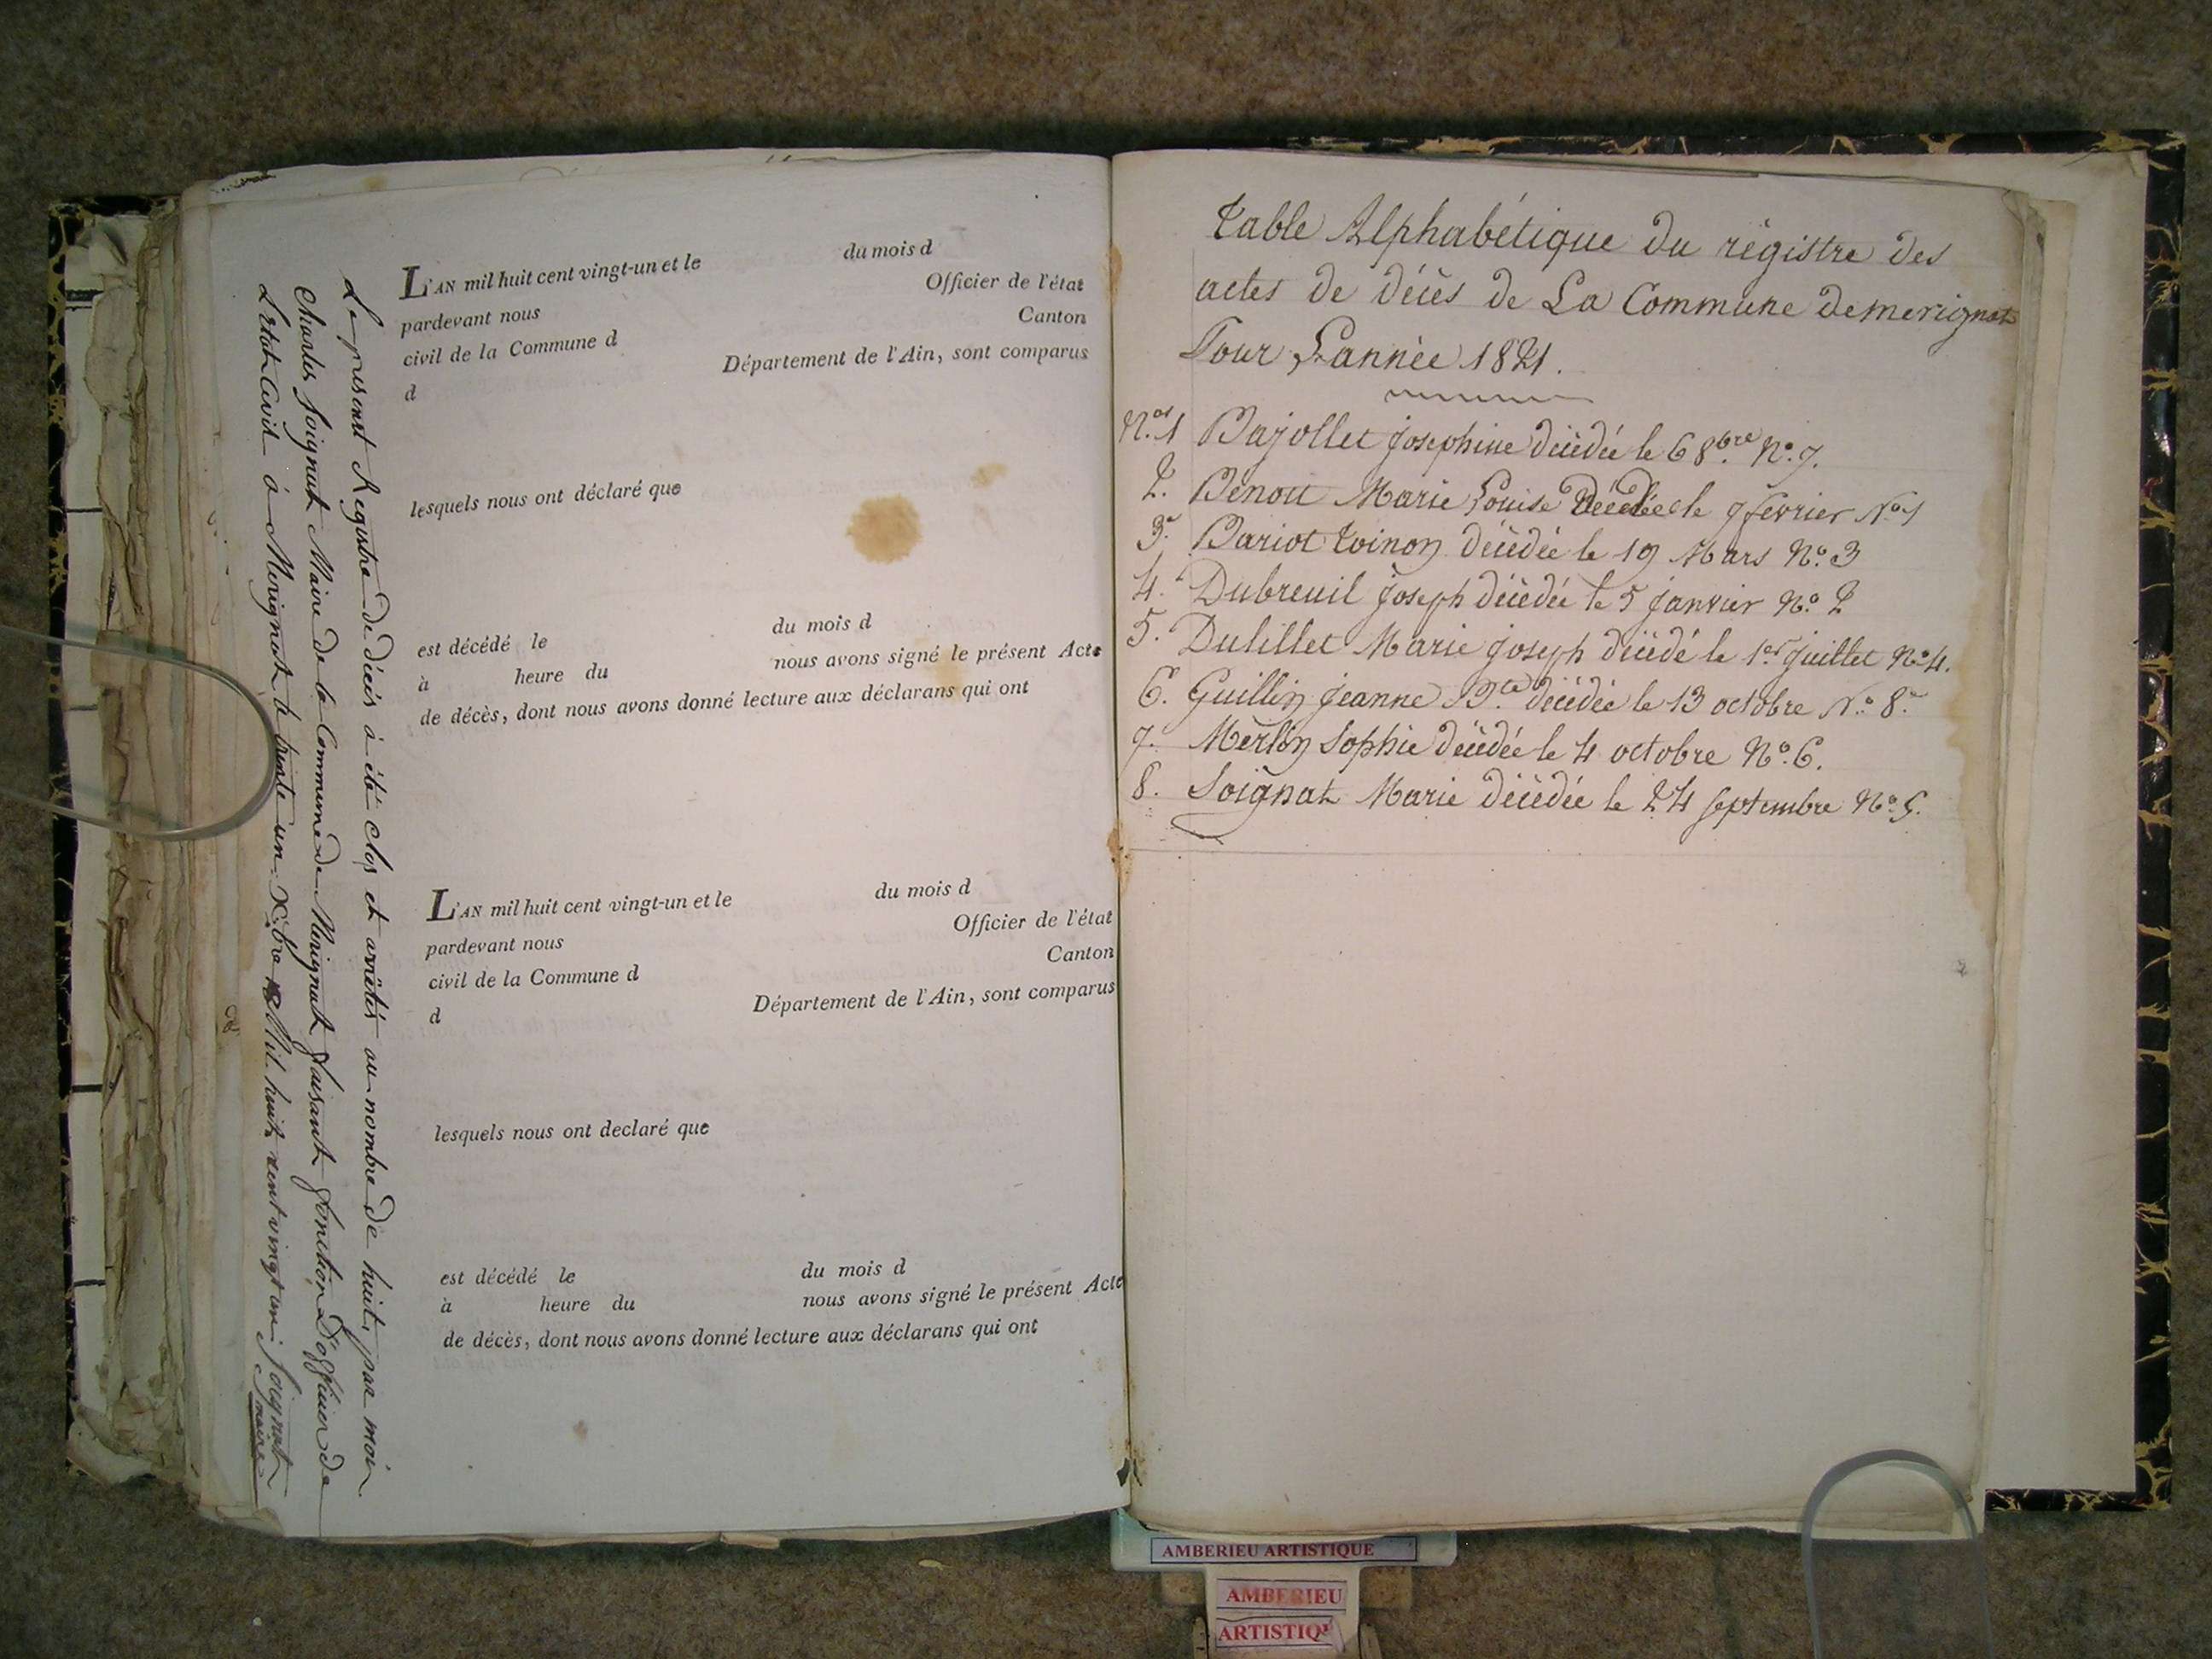 Le present Registre de décès à été clos et arrêtés au nombre de huit, par moi
Charles Soignat Maire de la Commune de Merignat faisant fonction D'officier de
L'état Civil à Merignat le trente un Xbre Mil huit cent vingt un. Soignat
maire
L'AN mil huit cent vingt-un et le du mois d
pardevant nous Officier de l'état
civil de la Commune d Canton
d Département de l'Ain, sont comparus
lesquels nous ont déclaré que
est décédé le du mois d
à heure du nous avons signé le présent Acte
de décès, dont nous avons donné lecture aux déclarans qui ont
L'AN mil huit cent vingt-un et le du mois d
pardevant nous Officier de l'état
civil de la Commune d Canton
d Département de l'Ain, sont comparus
lesquels nous ont declaré que
est décédé le du mois d
à heure du nous avons signé le présent Acte
de décès, dont nous avons donné lecture aux déclarans qui ont
Table Alphabétique du régistre des
actes de décès de La Commune de merignat
Pour L'année 1821.
N.os 1 Bajollet josephine décédée le 6 8bre N.o 7.
2. Benoit Marie Louise Décédée le 7 fevrier N.o 1
3. Bariot Toinon décédée le 19 Mars N.o 3
4. Dubreuil joseph décédée le 5 janvier N.o 2
5. Dulillet Marie joseph décédé le 1er juillet N.o 4.
6. Guillin jeanne B.te décédée le 13 octobre N.o 8.
7. Merlin Sophie décédée le 4 octobre N.o 6.
8. Soignat Marie décédée le 24 septembre N.o 5.
AMBERIEU ARTISTIQUE
AMBERIEU
ARTISTIQ